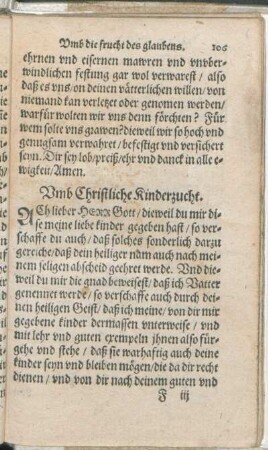 Vmb die frucht des glaubens. 106
ehrnen vnd eisernen mawren vnd vnvber-
windlichen festung gar wol verwarest / also
daß es vns / on deinen vätterlichen willen / von
niemand kan verletzt oder genomen werden /
warfür wolten wir vns denn förchten? Für
wem solte vns grawen? dieweil wir so hoch vnd
genugsam verwahret / befestigt vnd versichert
seyn. Dir sey lob / preiß / ehr vnd danck in alle e-
wigkeit / Amen.
Vmb Christliche Kinderzucht.
ACh lieber HERR Gott / dieweil du mir di-
se meine liebe kinder gegeben hast / so ver-
schaffe du auch / daß solches sonderlich darzu
gereiche / daß dein heiliger nam auch nach mei-
nem seligen abscheid geehret werde. Vnd die-
weil du mir die gnad beweisest / daß ich Vatter
genennet werde / so verschaffe auch durch dei-
nen heiligen Geist / daß ich meine / von dir mir
gegebene kinder dermassen vnterweise / vnd
mit lehr vnd guten exempeln jhnen also für-
gehe vnd stehe / daß sie warhafftig auch deine
kinder seyn vnd bleiben mögen / die da dir recht
dienen / vnd von dir nach deinem guten vnd
F iij